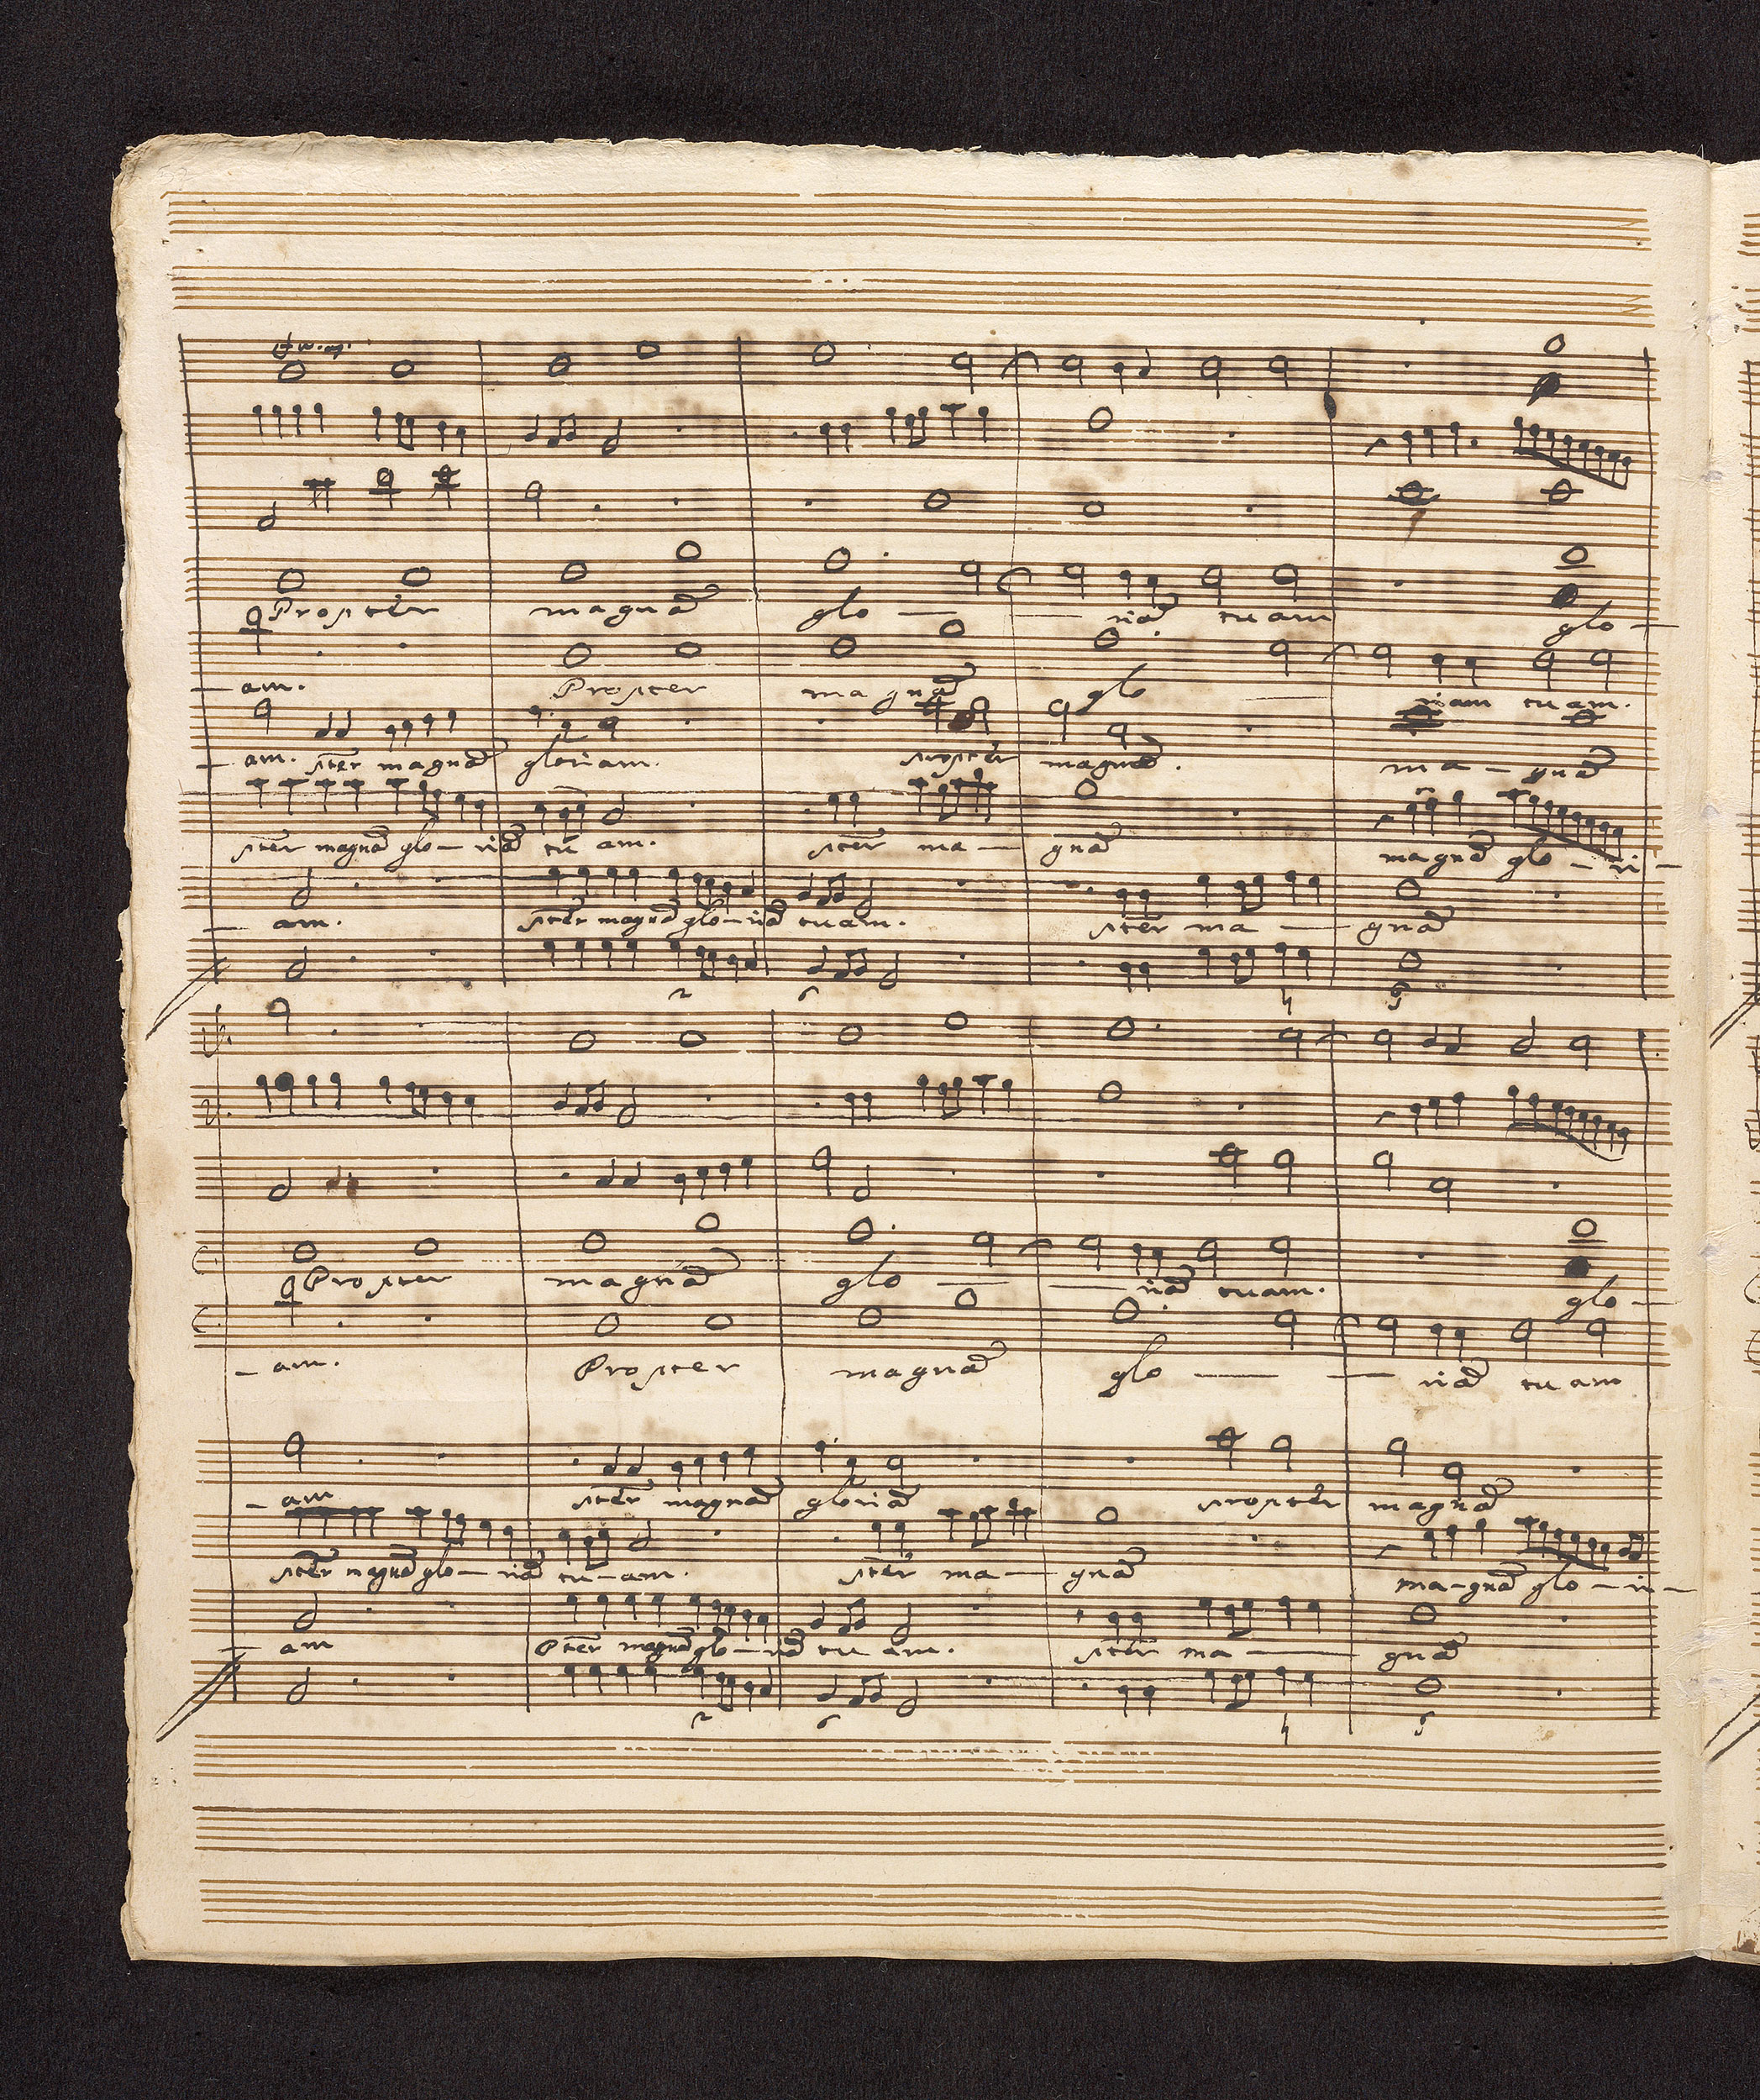 Propter magnã glo — riã tu am glo —
— am. Propter magnã glo riam tu am.
— am. pter magnã gloriam. propter magnã. ma — gnã
pter magnã glo — riã tu am. pter ma — gnã magnã glo — ri —
— am. pter magnã glo — riã tu am. pter ma — gnã
2 6 4 5
Propter magnã glo — riã tuam. glo —
— am. Propter magnã glo — riã tu am
— am pter magnã gloriã propter magnã
pter magnã glo — riã tu — am. pter ma — gnã ma — gnã glo — ri —
am Pter magnã glo — riã tu am. pter ma — gnã
2 6 4 5